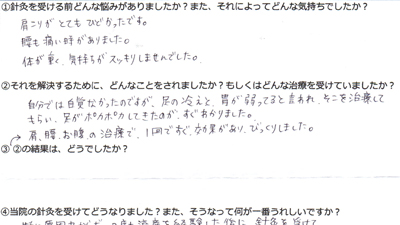 ①針灸を受ける前どんな悩みがありましたか？また、それによってどんな気持ちでしたか？
肩こりがとてもひどかったです。
腰も痛い時がありました。
体が重く、気持ちがスッキリしませんでした。
②それを解決するために、どんなことをされましたか？もしくはどんな治療を受けていましたか？
自分では自覚なかったのですが、足の冷えと、胃が弱ってると言われ、そこを治療して
もらい、足がポカポカしてきたのが、すぐわかりました。
肩、腰、お腹の治療で、1回ですぐ、効果があり、びっくりしました。
③ ②の結果は、どうでしたか？
④当院の針灸を受けてどうなりました？また、そうなって何が一番うれしいですか？